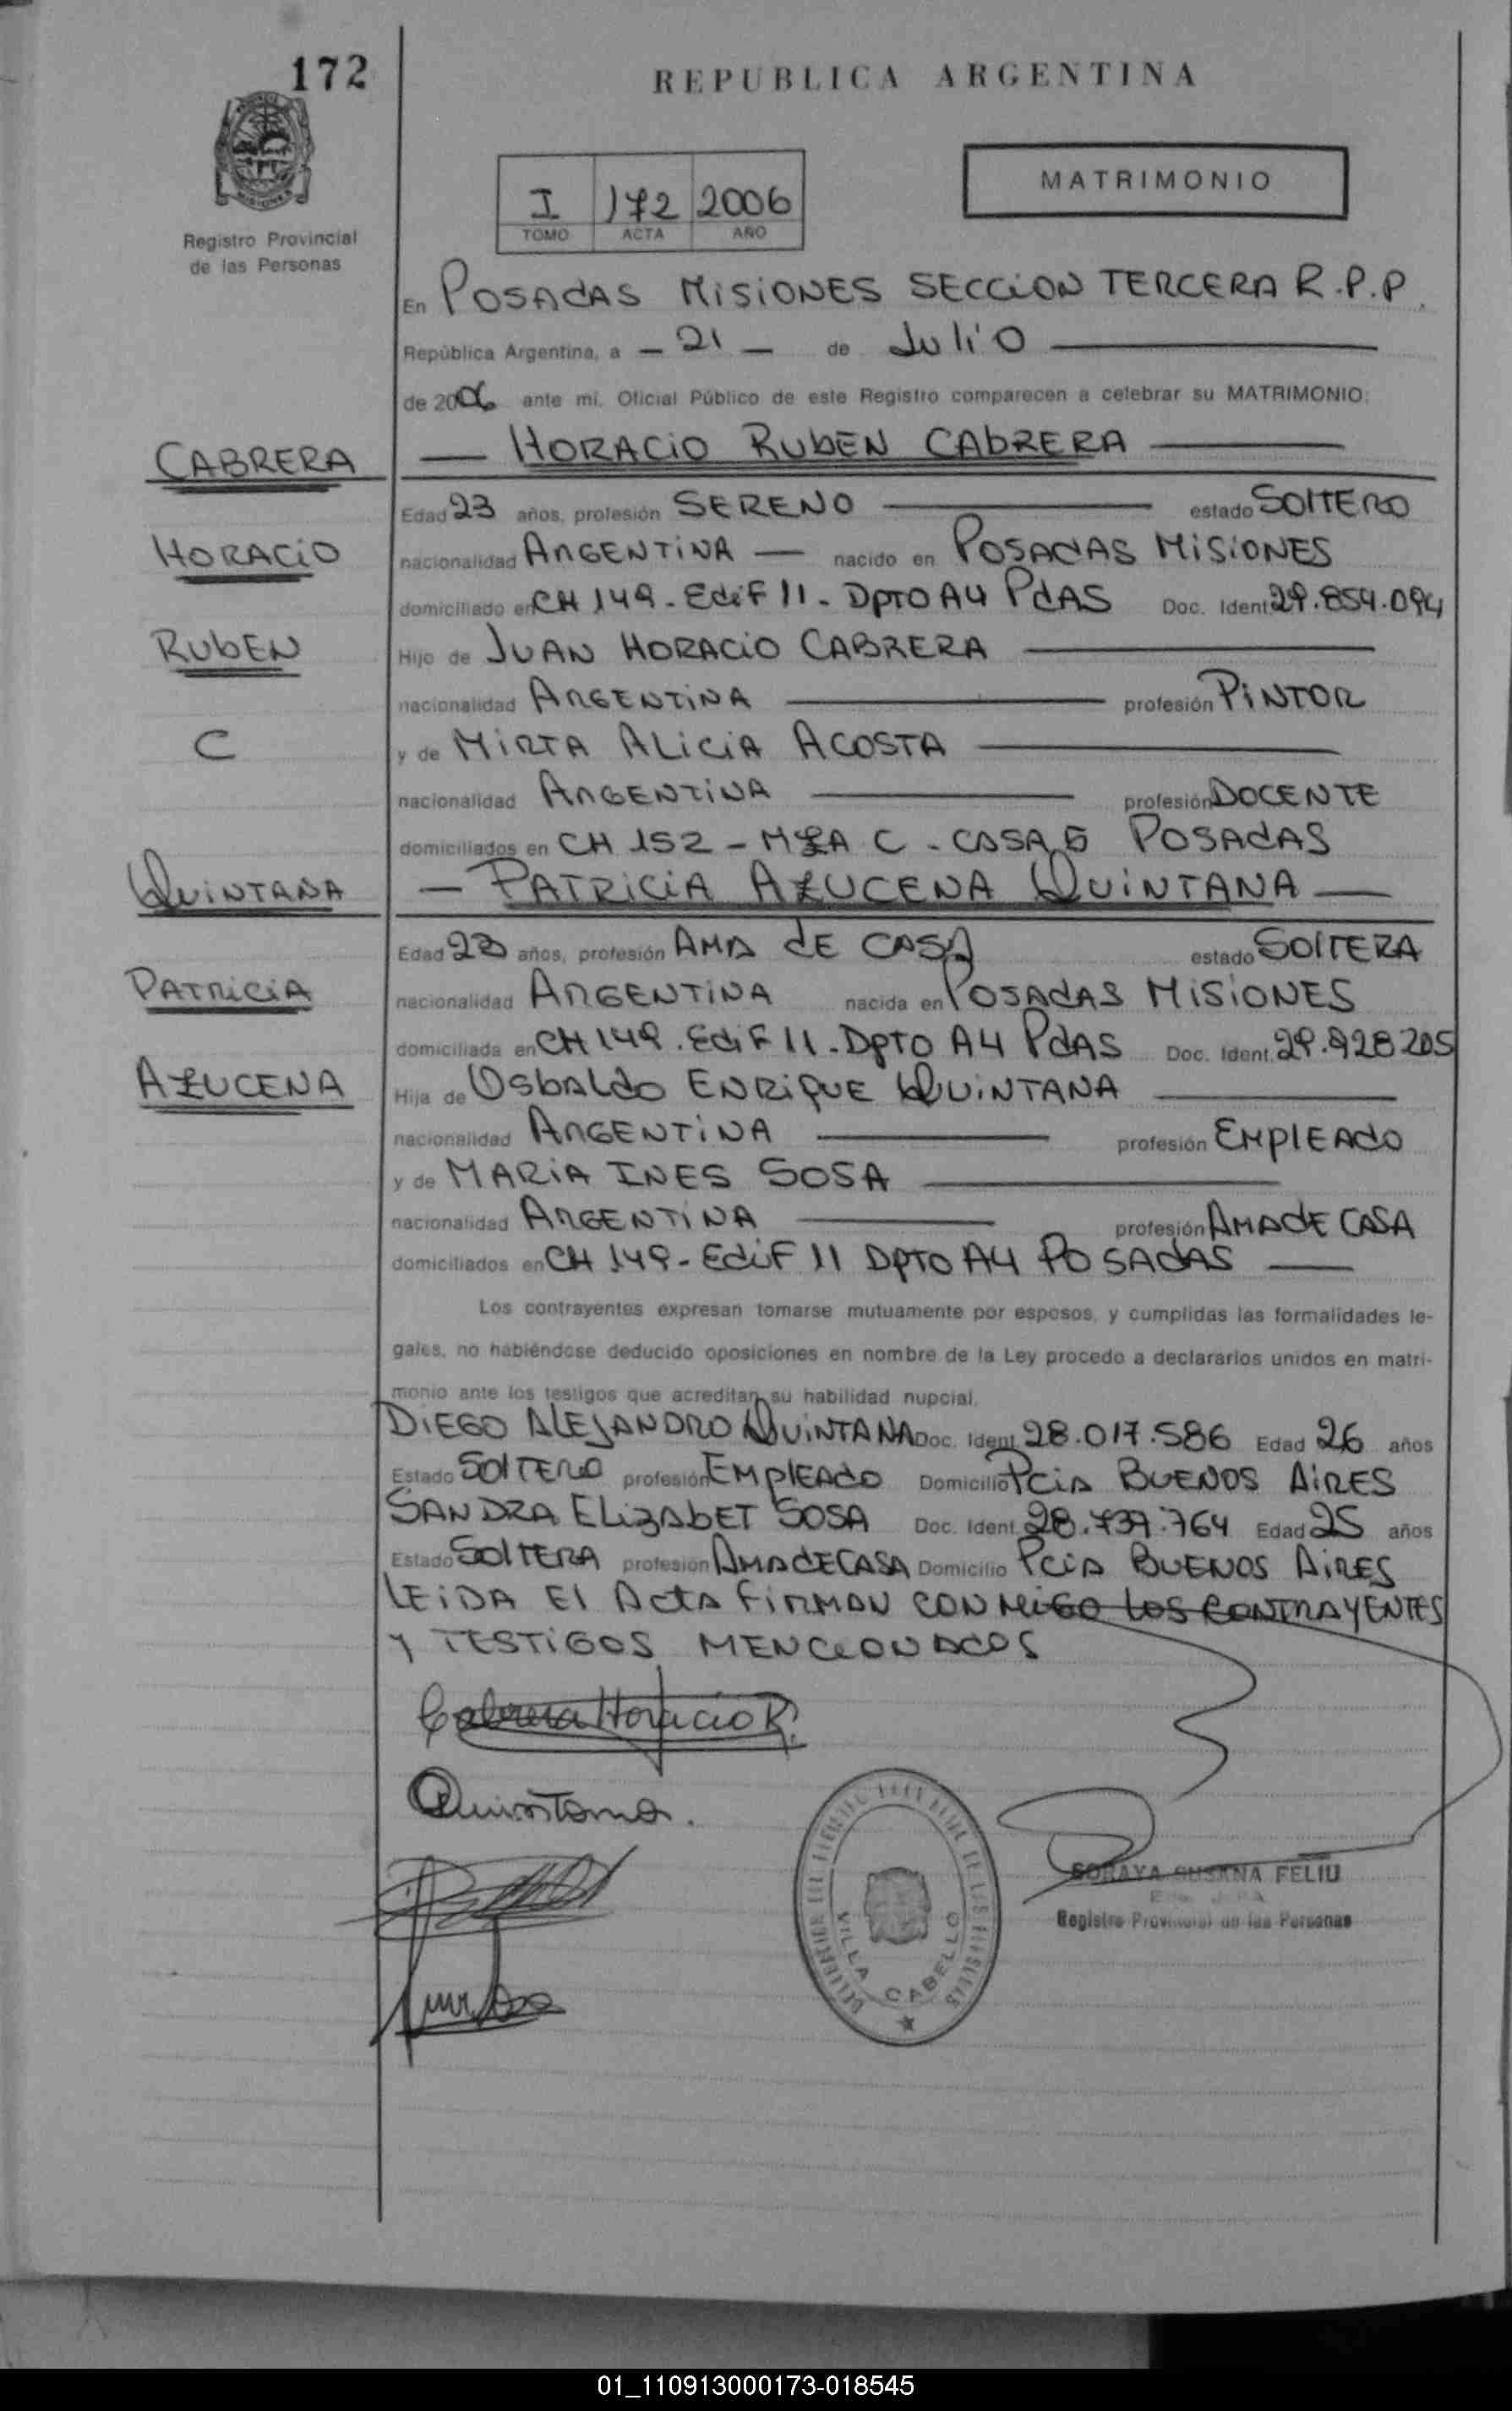 172
REPUBLICA ARGENTINA
MISIONES
Registro Provincial
de las Personas
MATRIMONIO
I 172 2006
TOMO ACTA AÑO
En POSADAS MISIONES SECCION TERCERA R.P.P.
República Argentina, a - 21 - de Julio
de 2006 ante mí, Oficial Público de este Registro comparecen a celebrar su MATRIMONIO:
CABRERA
HORACIO RUBEN CABRERA
Edad 23 años, profesión SERENO estado SOLTERO
HORACIO
nacionalidad ARGENTINA nacido en POSADAS MISIONES
domiciliado en CH 149 - Edif 11 - Dpto A4 Pdas Doc. Ident. 29.854.094
RUBEN
Hijo de JUAN HORACIO CABRERA
nacionalidad ARGENTINA profesión PINTOR
C
y de MIRTA ALICIA ACOSTA
nacionalidad ARGENTINA profesión DOCENTE
domiciliados en CH 152 - MZA C - CASA 5 POSADAS
QUINTANA
- PATRICIA AZUCENA QUINTANA -
Edad 23 años, profesión AMA DE CASA estado SOLTERA
PATRICIA
nacionalidad ARGENTINA nacida en POSADAS MISIONES
domiciliada en CH 149 - Edif 11 - Dpto A4 Pdas Doc. Ident. 29.928205
AZUCENA
Hija de OSBALDO ENRIQUE QUINTANA
nacionalidad ARGENTINA profesión EMPLEADO
y de MARIA INES SOSA
nacionalidad ARGENTINA profesión AMA DE CASA
domiciliados en CH 149 - Edif 11 Dpto A4 POSADAS
Los contrayentes expresan tomarse mutuamente por esposos, y cumplidas las formalidades le-
gales, no habiéndose deducido oposiciones en nombre de la Ley procedo a declararlos unidos en matri-
monio ante los testigos que acreditan su habilidad nupcial.
DIEGO ALEJANDRO QUINTANA Doc. Ident. 28.017.586 Edad 26 años
Estado SOLTERO profesión EMPLEADO Domicilio Pcia BUENOS AIRES
SANDRA ELIZABET SOSA Doc. Ident. 28.737.764 Edad 25 años
Estado SOLTERA profesión AMA DE CASA Domicilio Pcia BUENOS AIRES
LEIDA El ACTA FIRMAN CONMIGO LOS CONTRAYENTES
Y TESTIGOS MENCIONADOS
Cabrera Horacio R.
Quintana.
VILLA CABELLO
SORAYA SUSANA FELIU
Registro Provincial de las Personas
01_110913000173-018545